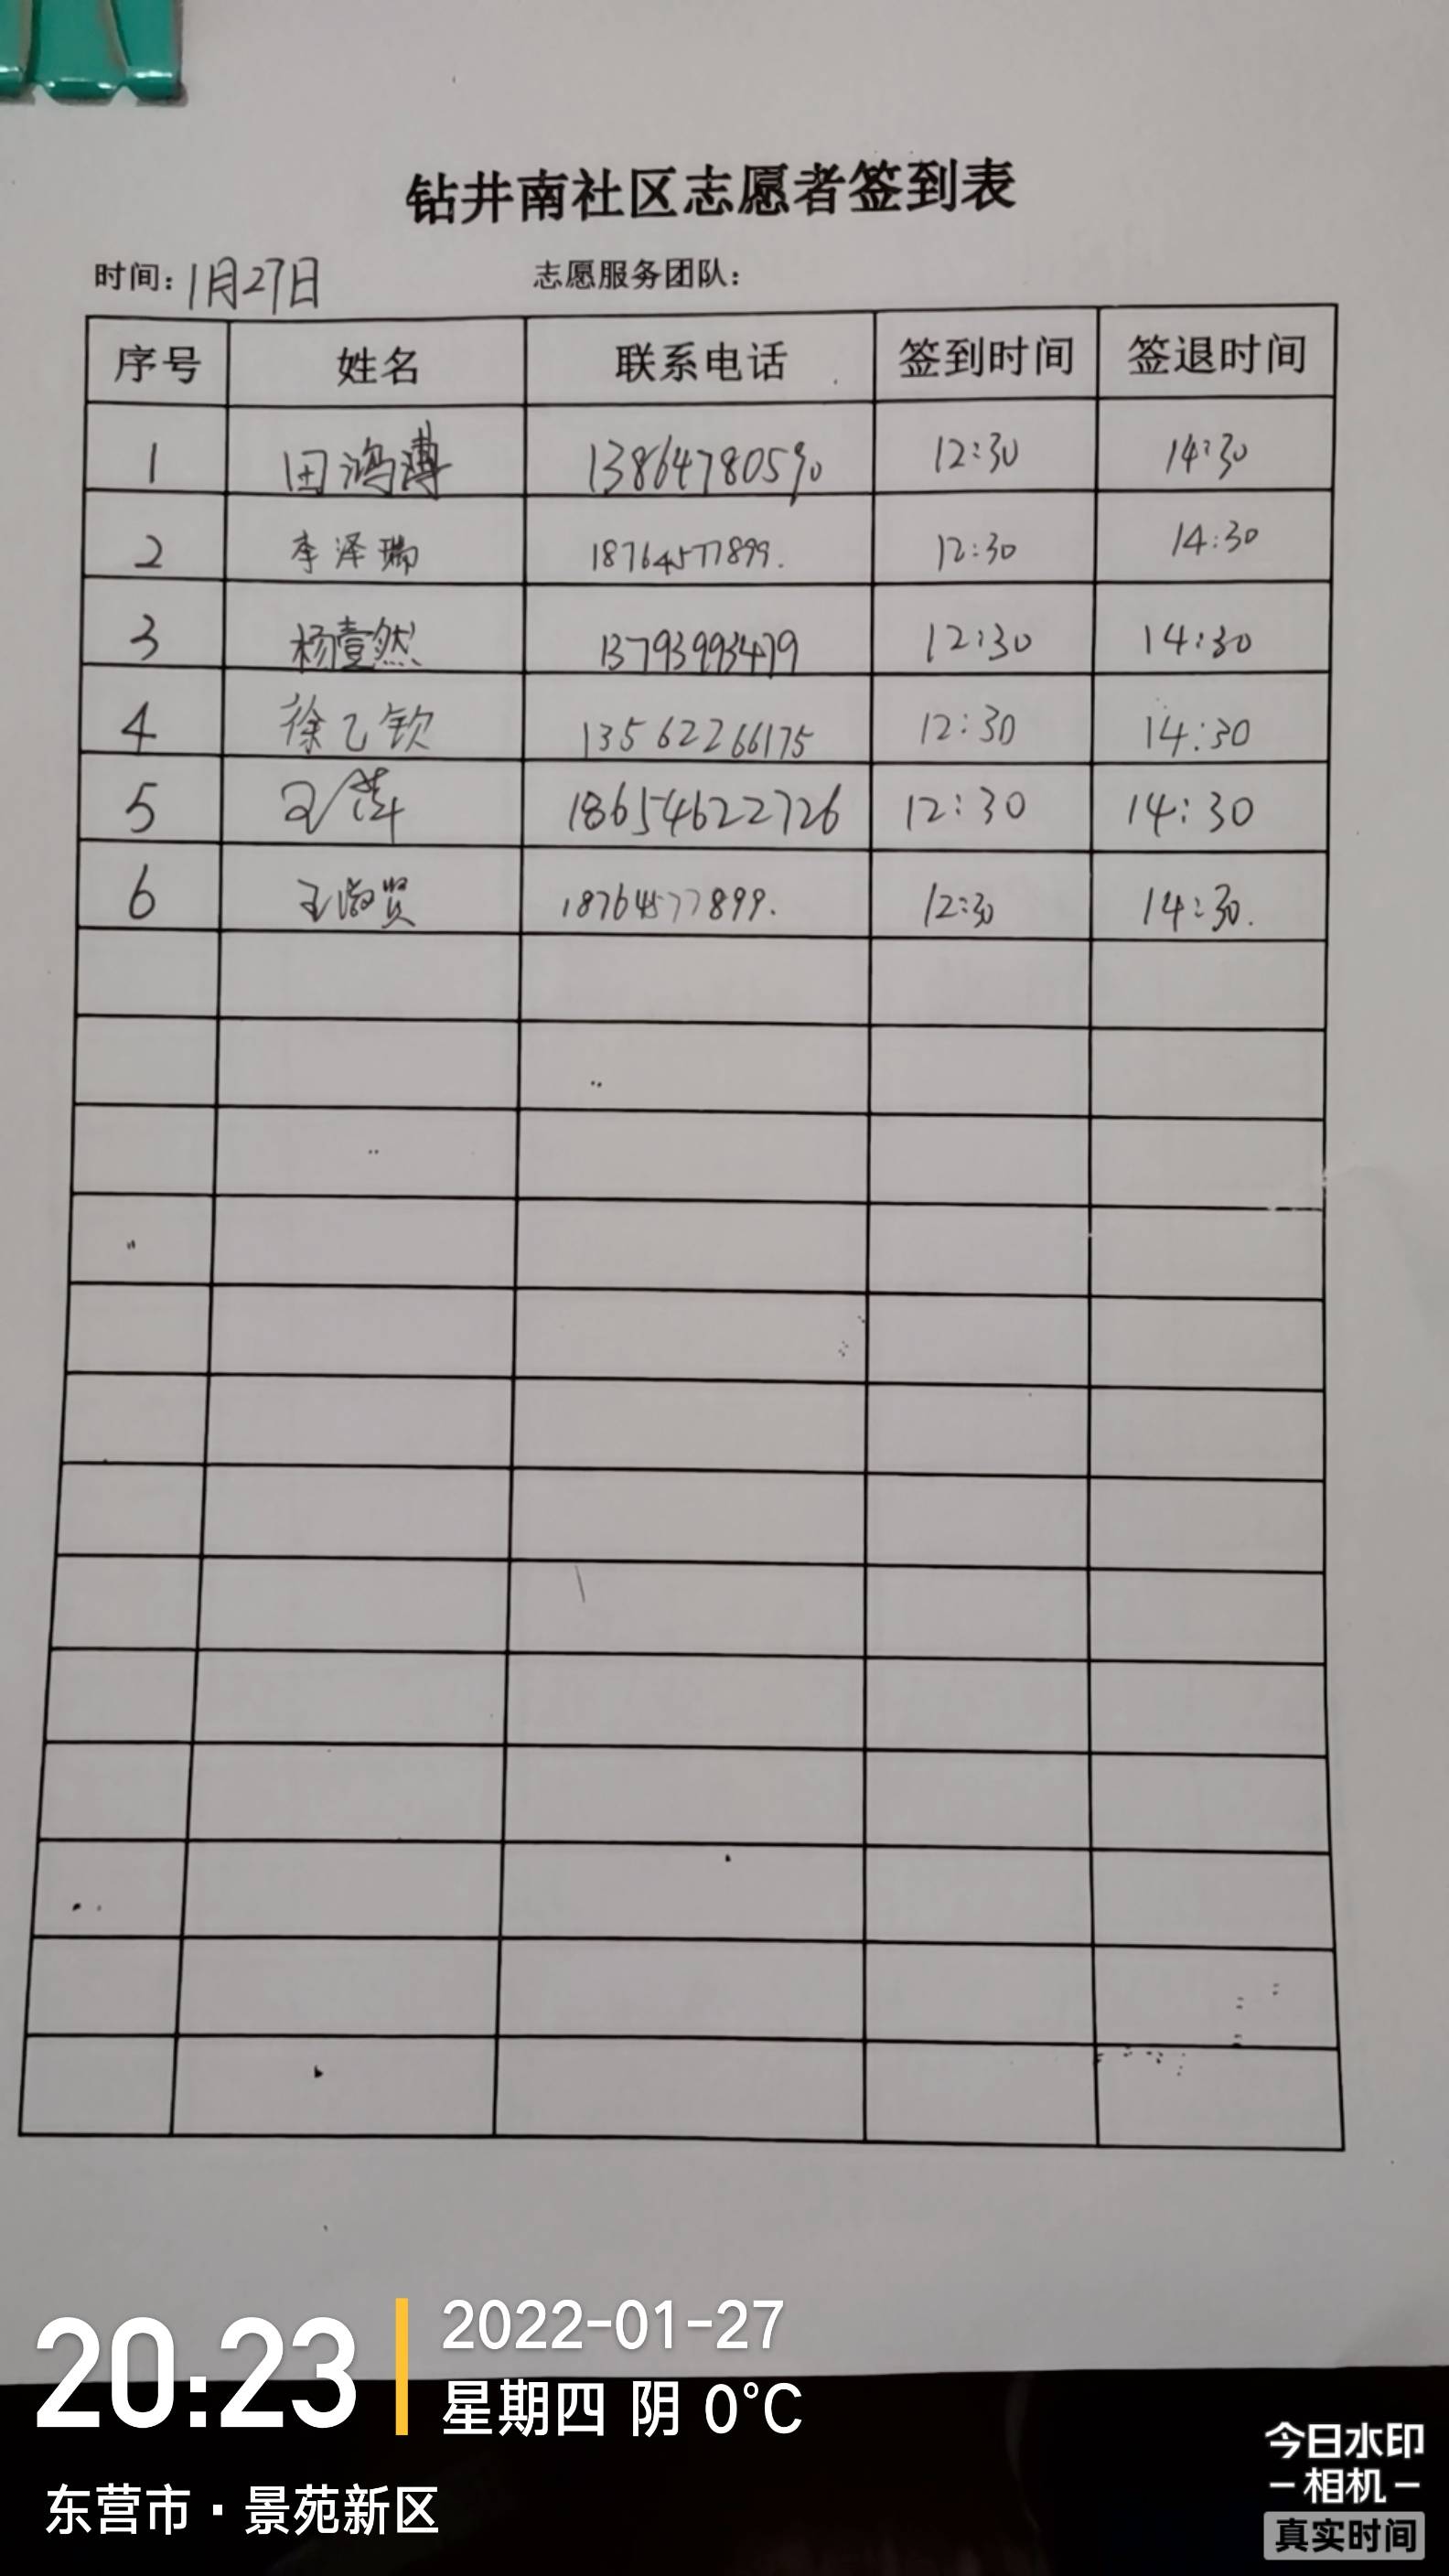 钻井南社区志愿者签到表
时间：1月27日 志愿服务团队：
序号 姓名 联系电话 签到时间 签退时间
1 田鸿溥 13864780590 12:30 14:30
2 李泽瑞 18764577899. 12:30 14:30
3 杨壹然 13793993479 12:30 14:30
4 徐乙钦 13562266175 12:30 14:30
5 王萍 18654622726 12:30 14:30
6 王淑贤 18764577899. 12:30 14:30.
20:23
2022-01-27
星期四 阴 0°C
东营市·景苑新区
今日水印
-相机-
真实时间